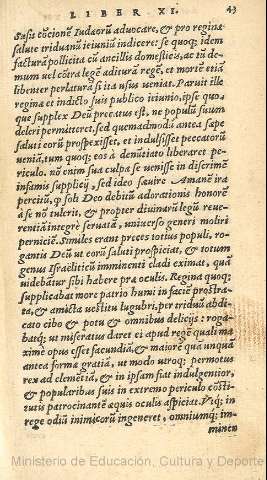 LIBER XI. 43
Susis cōcionē Iudæorū aduocare, & pro regina
salute triduanū ieiuniū indicere: se quoq; idem
facturā pollicita cū ancillis domesticis, ac tū de-
mum uel cōtra legē aditurā regē, et mortē etiā
libenter perlaturā si ita usus ueniat. Paruit ille
reginæ et indicto suis publico ieiunio, ipse quo-
que supplex Deū precatus est, ne populū suum
deleri permitteret, sed quemadmodū antea sæpe
saluti eorū prospexisset, et indulsisset peccatorū
ueniā, tum quoq; eos à denūtiato liberaret pe-
riculo. nō enim sua culpa se uenisse in discrimē
infamis supplicij, sed ideo sæuire Amanē ira
percitū, q̄ soli Deo debitū adorationis honorē
à se nō tulerit, & propter diuinarū legū reue-
rentiā integrè seruatā, uniuerso generi moliri
perniciē. Similes erant preces totius populi, ro-
gantis Deū ut eorū saluti prospiciat, & totum
genus Israeliticū imminenti cladi eximat, quā
uidebātur sibi habere præ oculis. Regina quoq;
supplicabat more patrio humi in faciē prostra-
ta, & amicta uestitu lugubri, per triduū abdi-
cato cibo & potu & omnibus delicijs: roga-
batq; ut miseratus daret ei apud regē qualimax
ximè opus esset facundiā, & maiorē quā unquā
antea formæ gratiā, ut modo utroq; permotus
rex ad clemētiā, & in ipsam fiat indulgentior,
& popularibus suis in extremo periculo cōsti-
tutis patrocinantē æquis oculis aspiciat. Vtq; in
rege odiū inimicorū ingeneret, omniumq; im-
minen
Ministerio de Educación, Cultura y Deporte